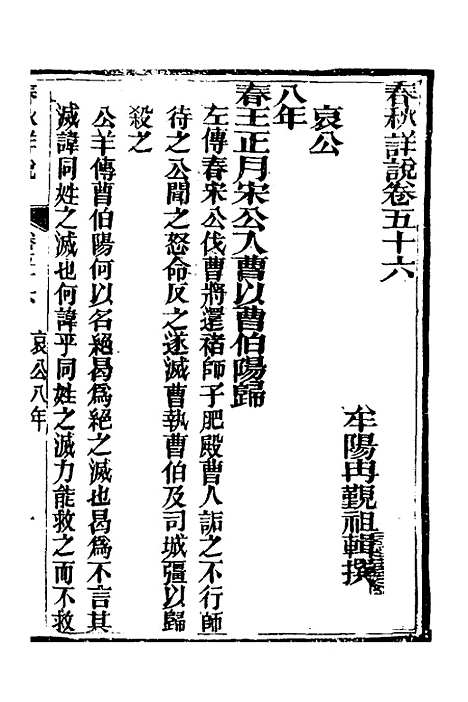 春秋詳說卷五十六
牟陽冉覲祖輯撰
哀公
八年
春王正月宋公入曹以曹伯陽歸
左傳春宋公伐曹將還褚師子肥殿曹人詬之不行師
待之公聞之怒命反之遂滅曹執曹伯及司城彊以歸
殺之
公羊傳曹伯陽何以名絕曷爲絕之滅也曷爲不言其
滅諱同姓之滅也何諱乎同姓之滅力能救之而不救
春秋詳說
哀公八年